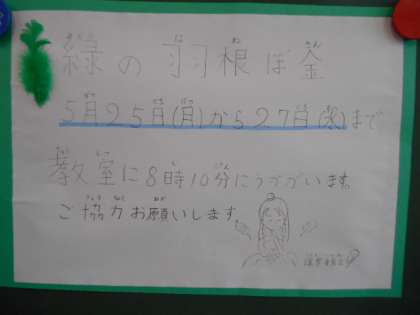 緑の羽根ぼ金
5月25日(月)から27日(水)まで
教室に8時10分にうかがいます。
ご協力お願いします。